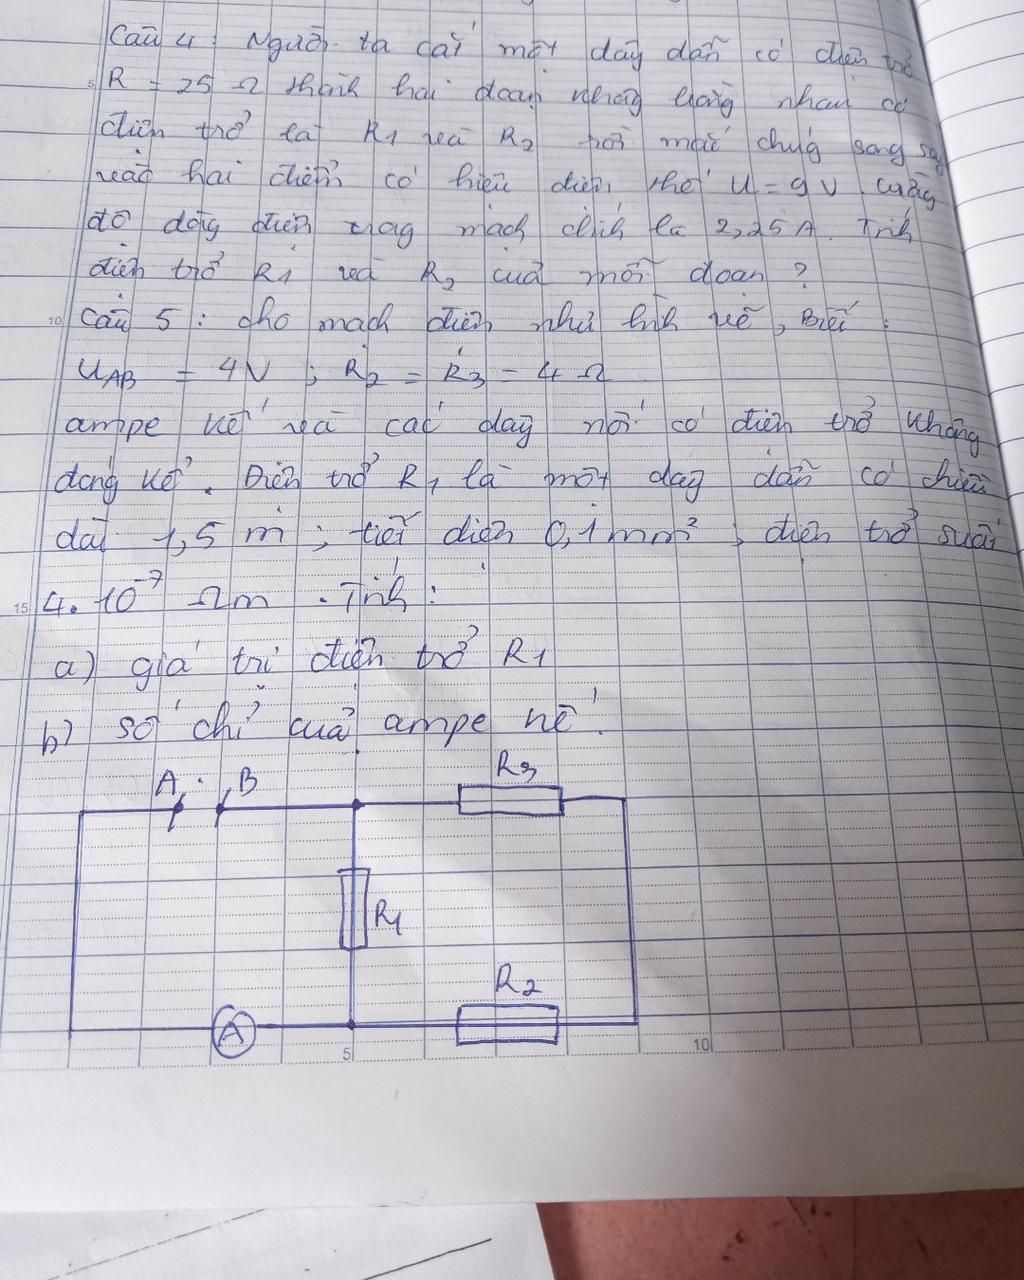 Câu 4: Người ta cắt một dây dẫn có điện trở
R = 25 Ω thành hai đoạn không bằng nhau có
điện trở là R1 và R2 rồi mắc chúng song song
vào hai điểm có hiệu điện thế U = 9V. cường
độ dòng điện trong mạch chính là 2,25A. Tính
điện trở R1 và R2 của mỗi đoạn ?
10 Câu 5 : cho mạch điện như hình vẽ, Biết :
UAB = 4V ; R2 = R3 = 4 Ω
ampe kế và các dây nối có điện trở không
đáng kể. Điện trở R1 là một dây dẫn có chiều
dài 1,5 m ; tiết diện 0,1mm² ; điện trở suất
15 4.10⁻⁷ Ωm. Tính :
a) giá trị điện trở R1
b) số chỉ của ampe kế.
A B R3
R1
R2
A
5 10